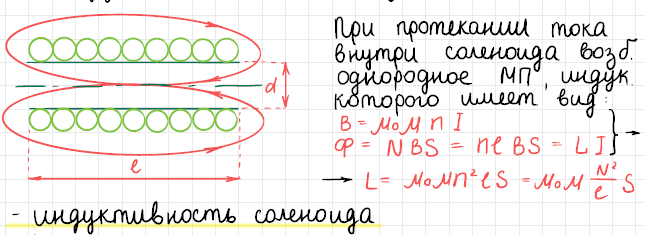 При протекании тока
внутри соленоида возб.
однородное МП, индук.
которого имеет вид:
B = μ₀μ n I
Φ = NBS = nℓBS = LI } →
→ L = μ₀μn²ℓS = μ₀μ N²/ℓ S
d
ℓ
- индуктивность соленоида